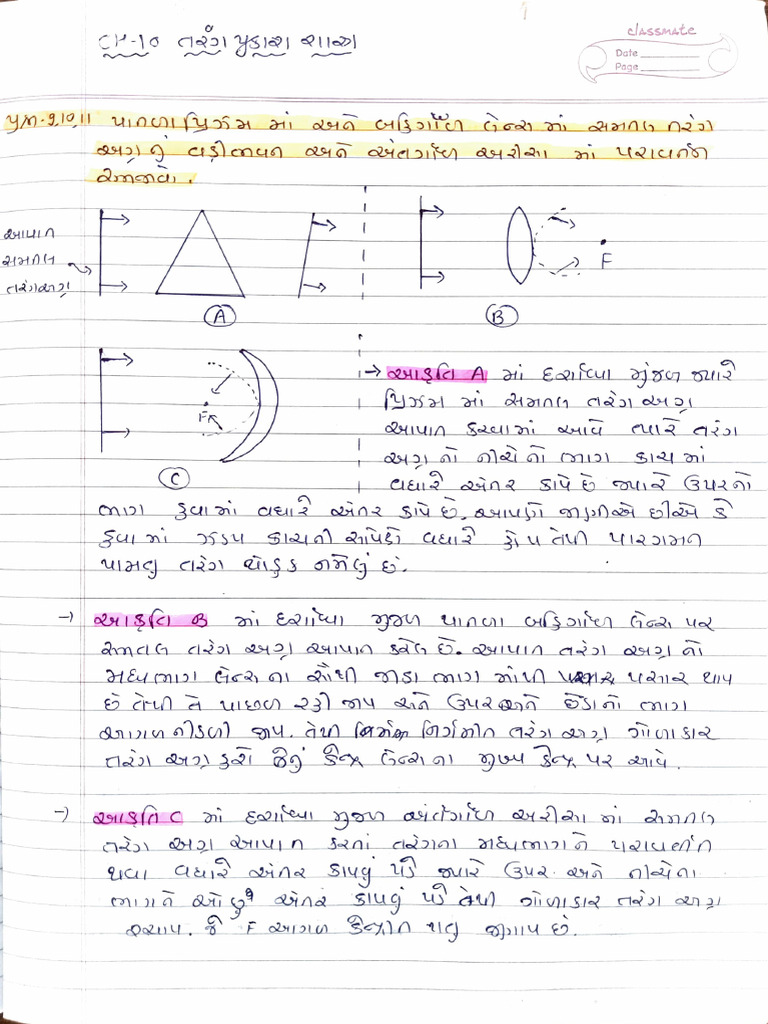 CLASSMATE
Date
Page
CH-10 તરંગ પ્રકાશ શાસ્ત્ર
પાતળા પ્રિઝમ માં અને બહિર્ગોળ લેન્સ માં સમતલ તરંગ
અગ્રનું વક્રીભવન અને અંતર્ગોળ અરીસા માં પરાવર્તન
સમજાવો.
આપાત
સમતલ
તરંગઅગ્ર
A
B
F
C
F
→ આકૃતિ A માં દર્શાવ્યા મુજબ જ્યારે
પ્રિઝમ માં સમતલ તરંગ અગ્ર
આપાત કરવામાં આવે ત્યારે તરંગ
અગ્ર નો નીચે નો ભાગ કાચ માં
વધારે અંતર કાપે છે જ્યારે ઉપરનો
ભાગ હવામાં વધારે અંતર કાપે છે. આપણે જાણીએ છીએ કે
હવા માં ઝડપ કાચની સાપેક્ષે વધારે હોય તેથી પારગમન
પામતુ તરંગ થોડુક નમેલું છે.
→ આકૃતિ B માં દર્શાવ્યા મુજબ પાતળા બહિર્ગોળ લેન્સ પર
સમતલ તરંગ અગ્ર આપાત કરેલ છે. આપાત તરંગ અગ્ર નો
મધ્યભાગ લેન્સ ના સૌથી જાડા ભાગ માંથી પસાર થાય
છે તેથી તે પાછળ રહી જાય અને ઉપર અને છેડાનો ભાગ
આગળ નીકળી જાય. તેથી નિર્ગમીત તરંગ અગ્ર ગોળાકાર
તરંગ અગ્ર હશે જેનું કેન્દ્ર લેન્સ ના મુખ્ય કેન્દ્ર પર આવે.
→ આકૃતિ C માં દર્શાવ્યા મુજબ અંતર્ગોળ અરીસા માં સમતલ
તરંગ અગ્ર આપાત કરતાં તરંગના મધ્યભાગ ને પરાવર્તીત
થવા વધારે અંતર કાપવું પડે જ્યારે ઉપર અને નીચેના
ભાગને ઓછું અંતર કાપવું પડે તેથી ગોળાકાર તરંગ અગ્ર
જે F આગળ કેન્દ્રીત થતુ જણાય છે.